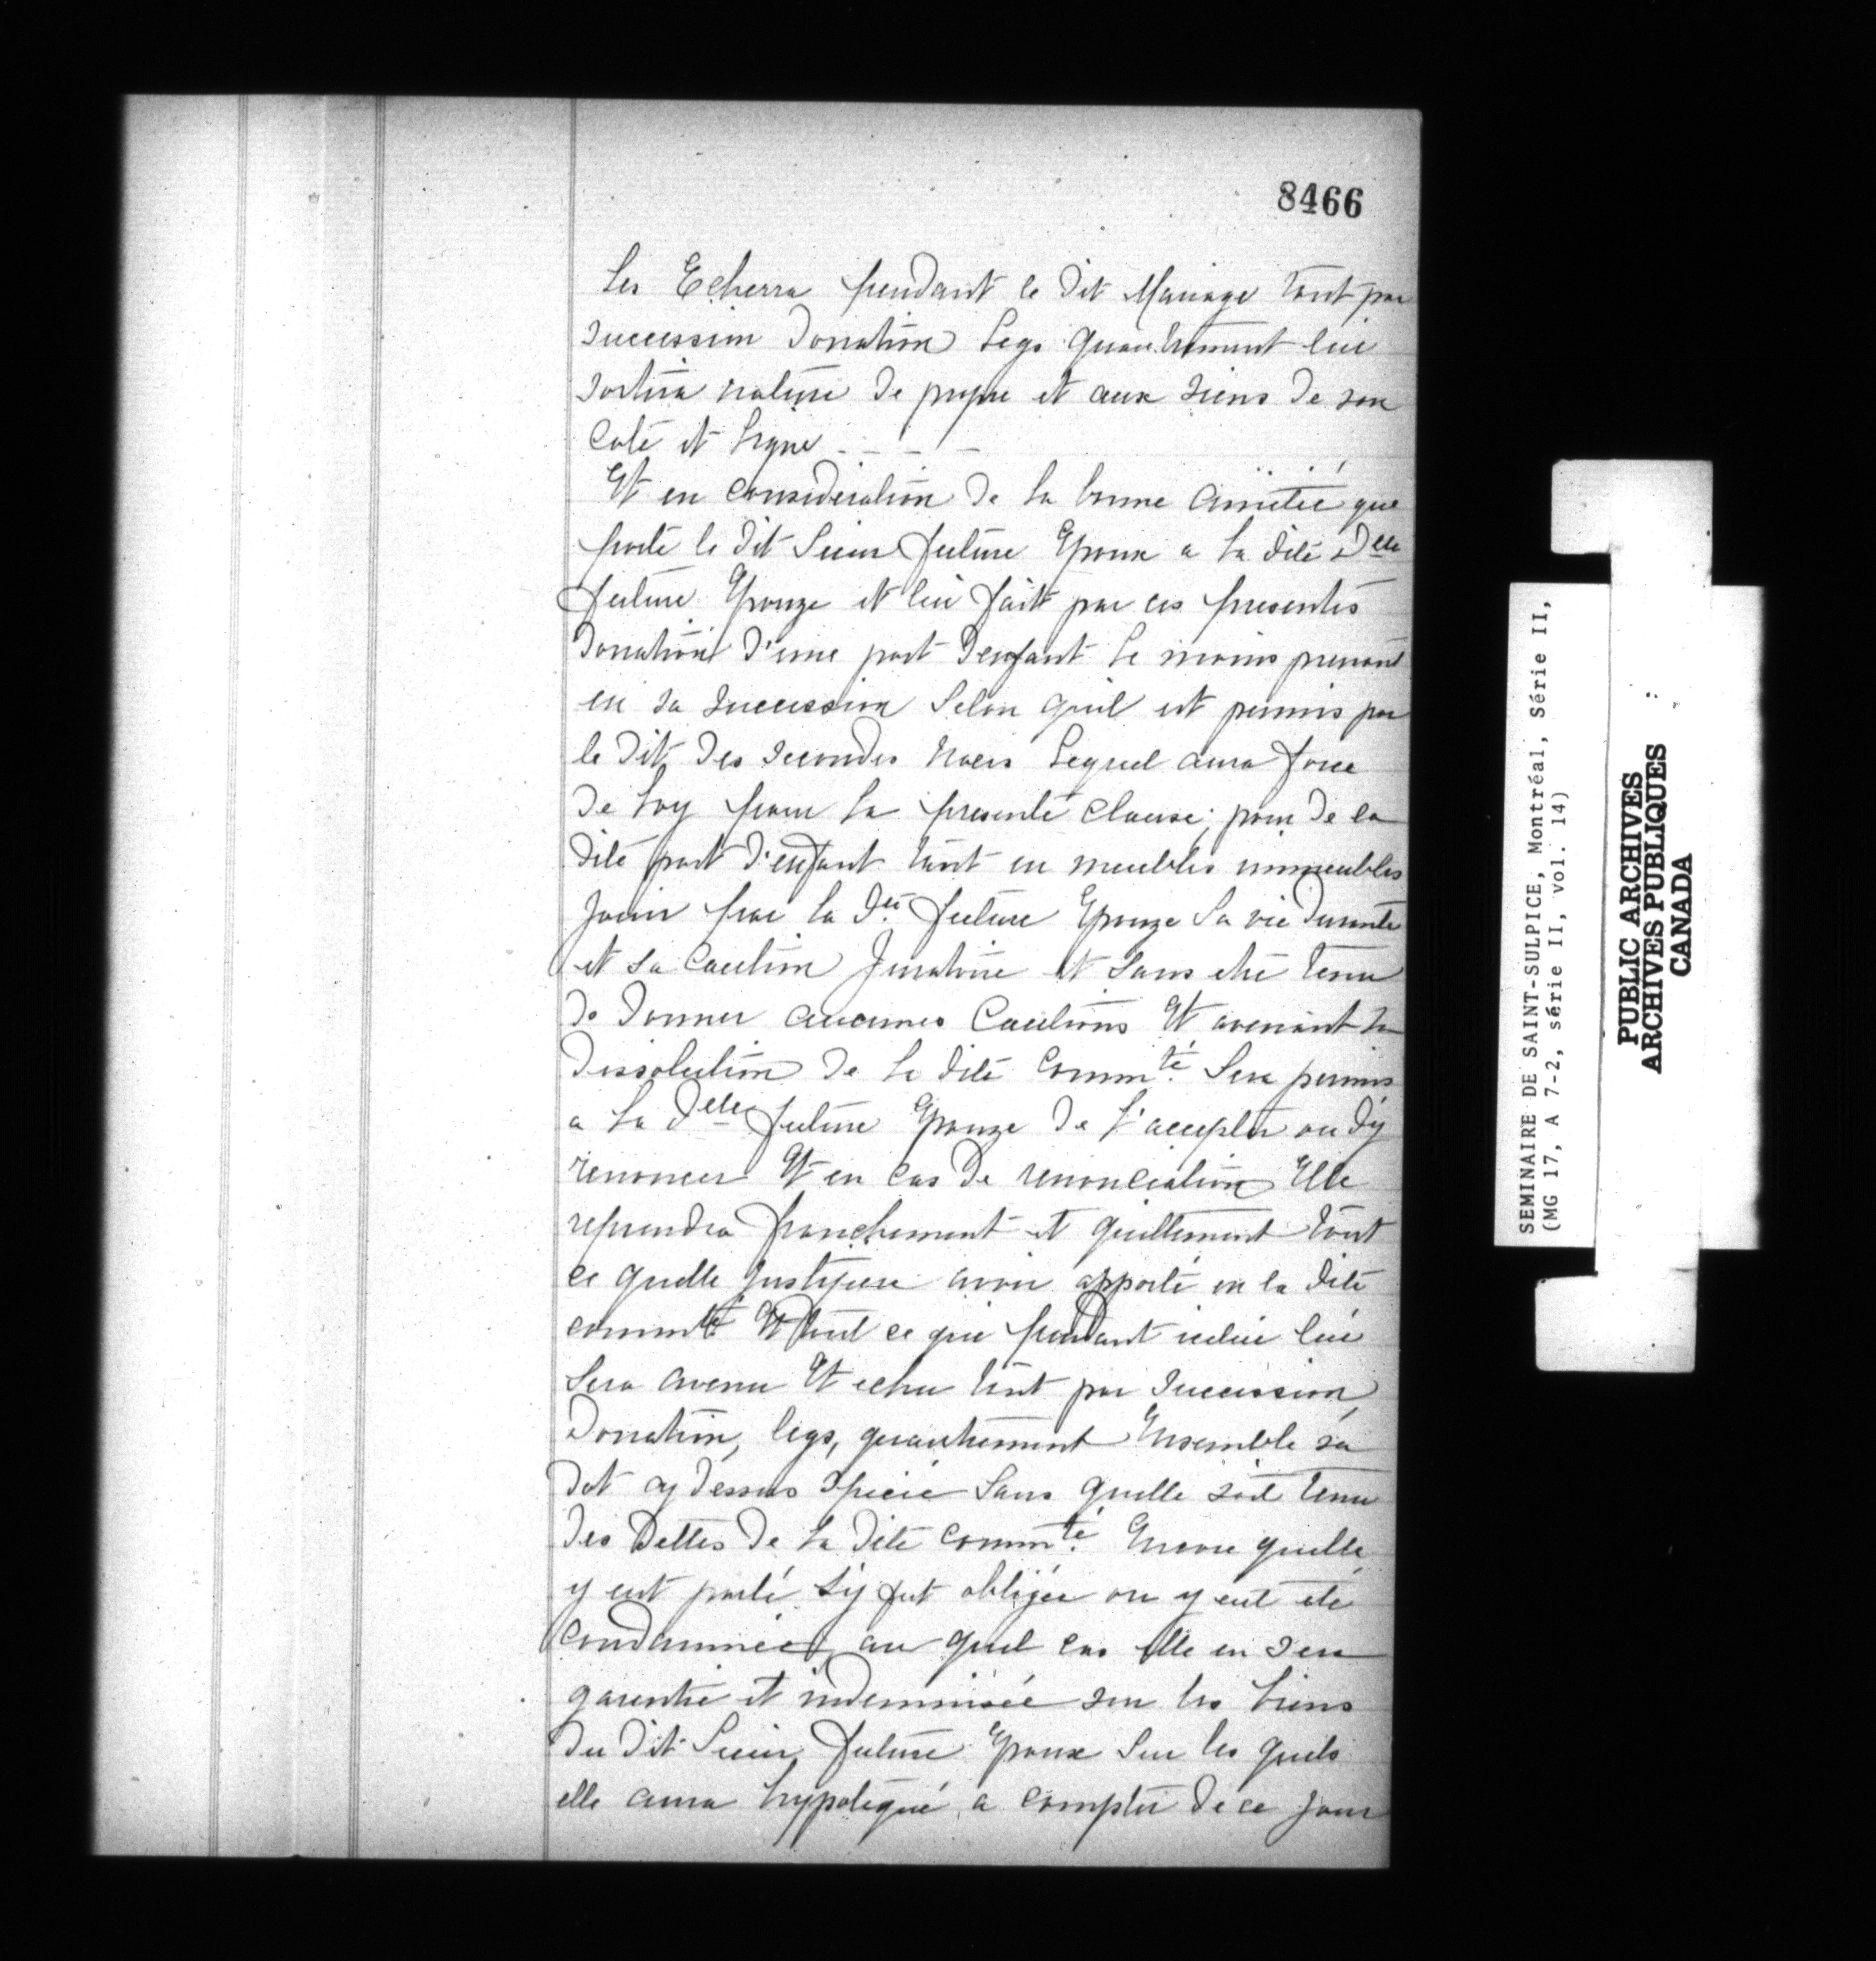 8466
les Echerra pendant le dit Mariage tant par
succession Donation Legs quautrement lui
sortira nature de propre et aux siens de son
Coté et ligne - - - -
Et en consideration de la bonne amitié que
porte le dit Sieur future Epoux a la dite Delle
future Epouze et lui fait par ces presentes
Donation d'une part d'enfant le moins prenant
en sa succession Selon quil est permis par
le dit des secondes noces Lequel aura force
de loy pour la presente clause; pour de la
dite part d'enfant tant en meubles immeubles
jouir par la Dte future Epouze sa vie durante
et sa Caution Juratoire et sans etre tenu
de donner aucunes Cautions Et avenant la
Dissolution de la dite Commté. Sera permis
a la Delle future Epouze de l'accepter ou d'y
renoncer Et en cas de renonciation Elle
reprendra franchement et quittement tout
ce quelle justifiera avoir apporté en la dite
commté Et tout ce qui pendant icelui lui
sera avenu Et echu tant par succession,
Donation, legs, quautrement Ensemble sa
dot cy dessus spécié Sans quelle soit tenu
des Dettes de la dite Commté. Encore quelle
y eut parlé s'y fut obligée ou y eut été
condamnée, au quel cas elle en sera
garentie et indemnisée sur les biens
du dit Sieur future Epoux Sur les quels
elle aura hypotéqué, a compter de ce jour
SEMINAIRE DE SAINT-SULPICE, Montréal, Série II,
(MG 17, A 7-2, série II, vol. 14)
PUBLIC ARCHIVES
ARCHIVES PUBLIQUES
CANADA